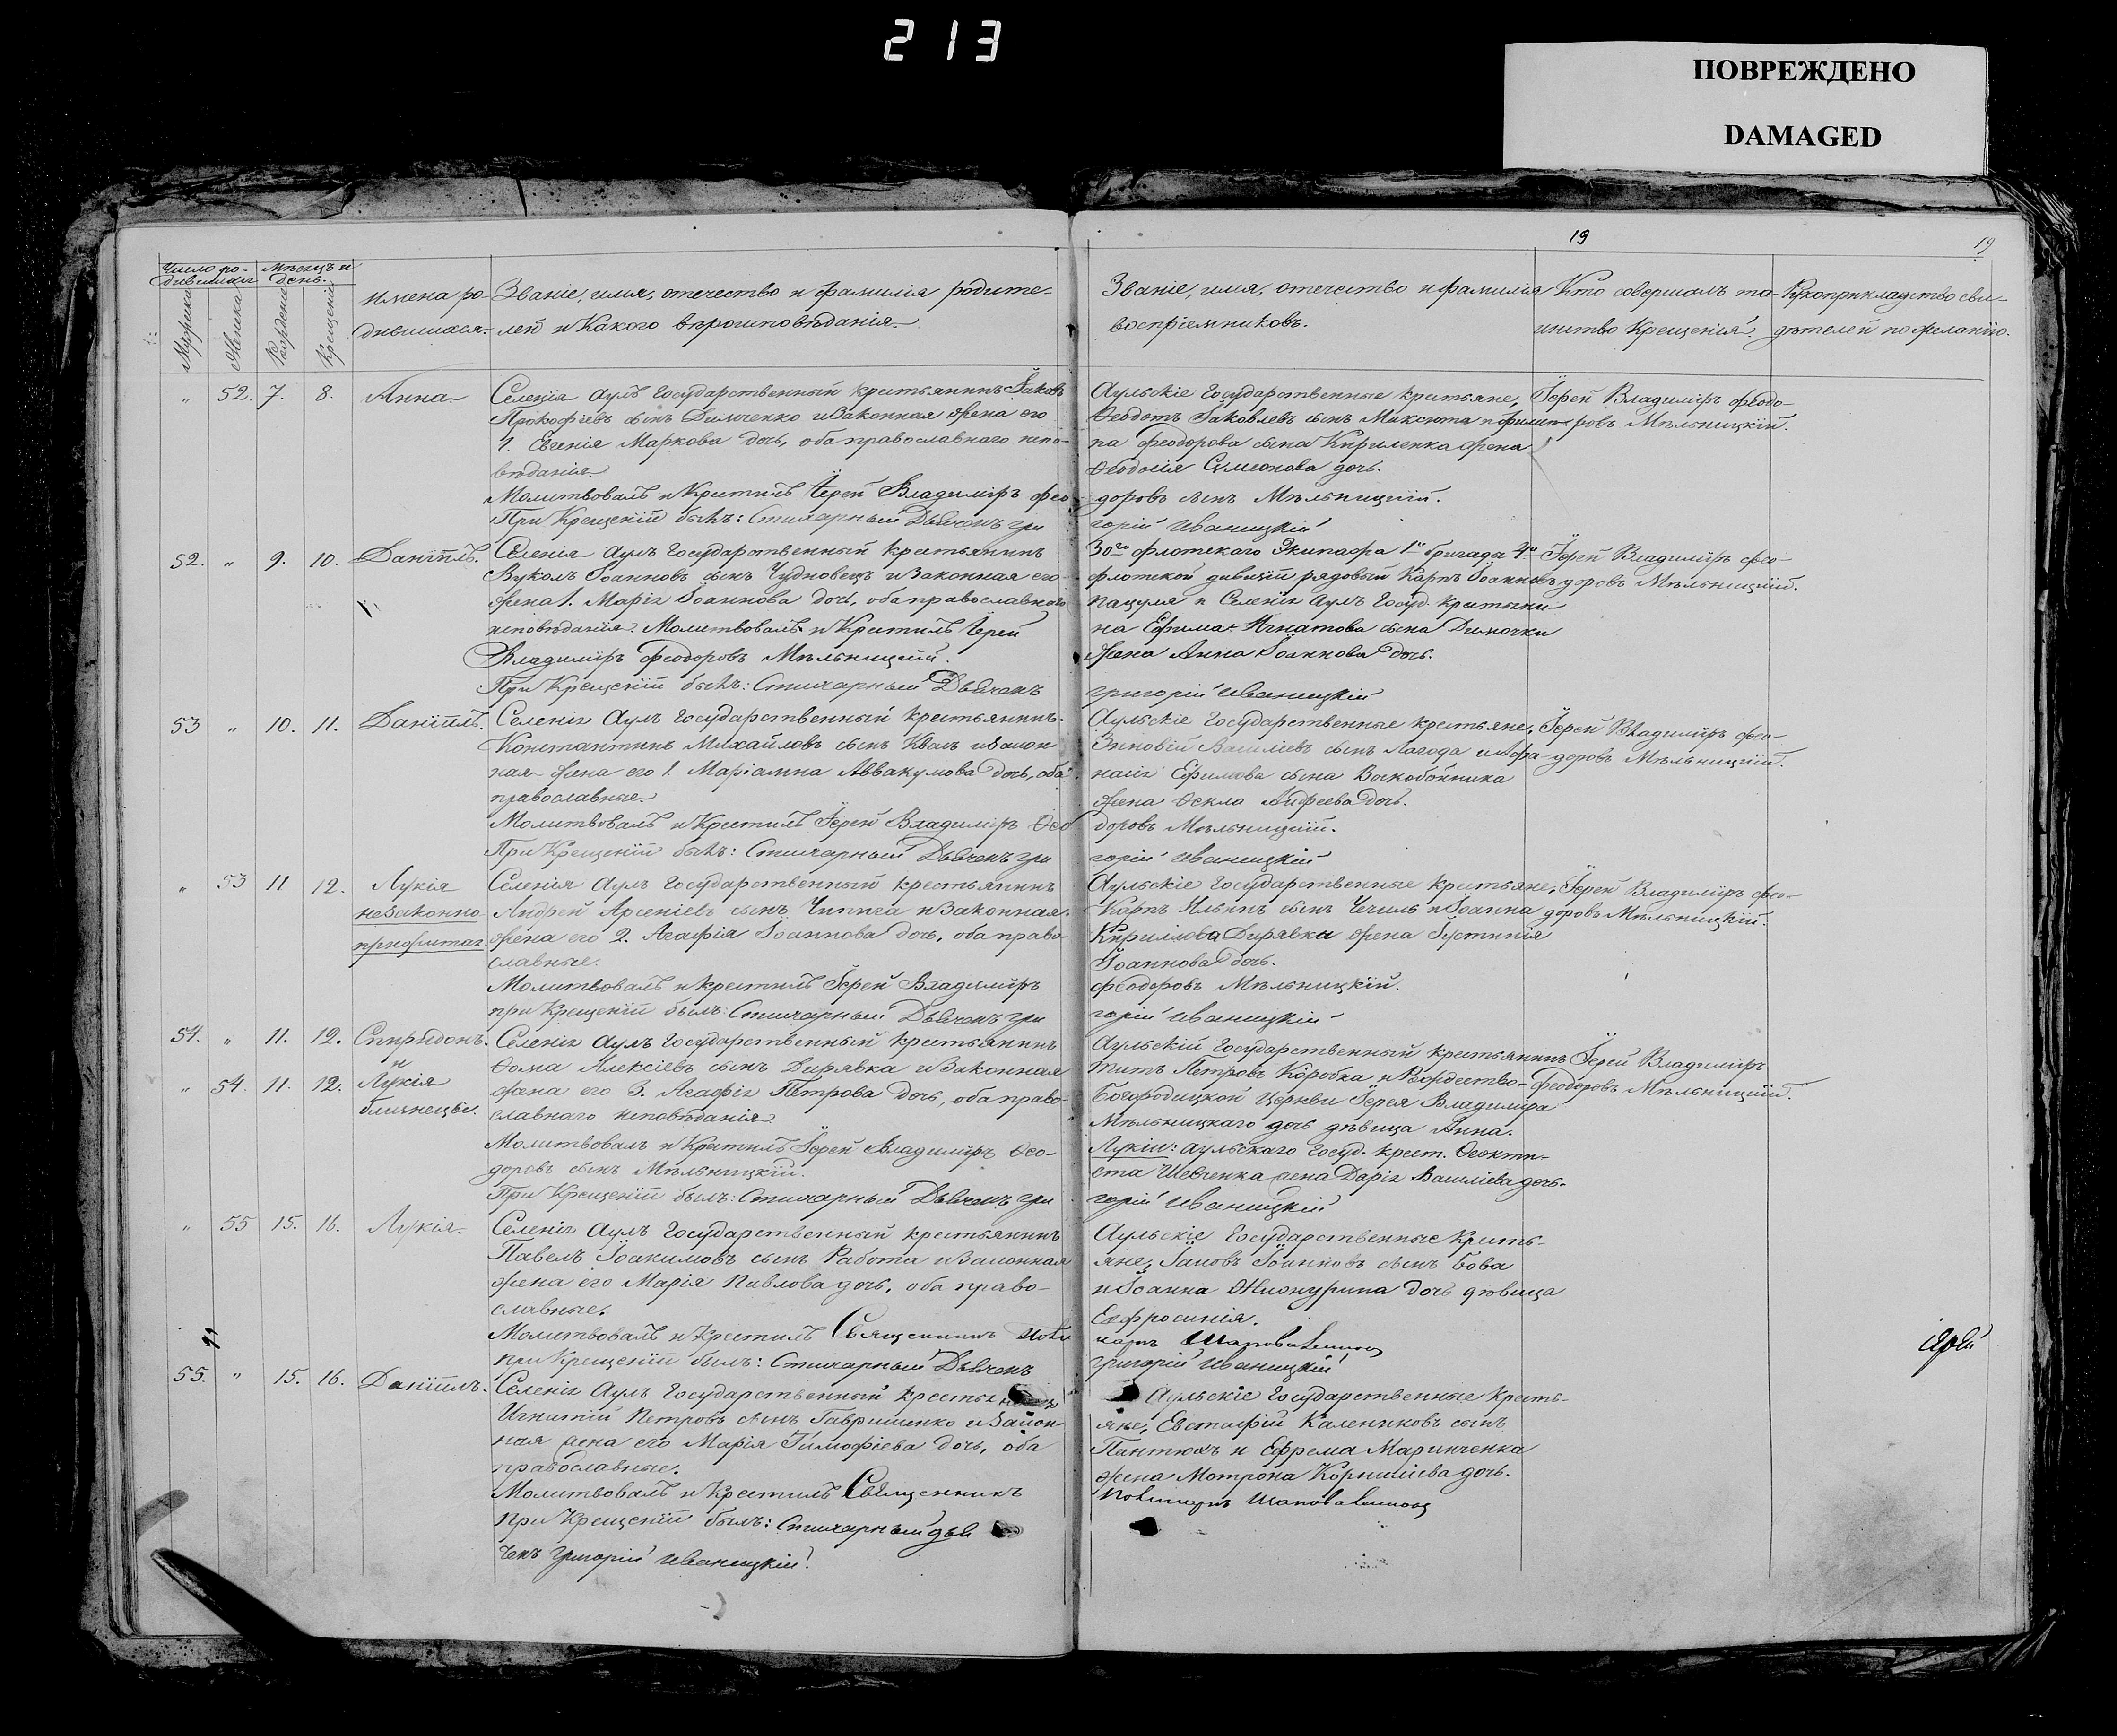 213
ПОВРЕЖДЕНО
DAMAGED
19
19
Число ро-
дившихся
Мѣсяцъ и
день.
Мужескъ
Женска
Рожденія
Крещенія
Имена ро-
дившихся.
Званіе, имя, отечество и фамилія родите-
лей и Какого вѣроисповѣданія.
Званіе, имя, отечество и фамилія
воспріемниковъ.
Кто совершалъ та-
инство Крещенія.
Рукоприкладство сви-
дѣтелей по желанію.
„ 52. 7. 8. Анна
Селенія Аулъ Государственный крестьянинъ Іаковъ
Прокофіевъ сынъ Демченко и Законная жена его
1. Евгенія Маркова дочь, оба православнаго испо-
вѣданія.
Молитвовалъ и Крестилъ Іерей Владиміръ Фео
При Крещеніи былъ: Стихарный Дьячокъ Гри
Аульскіе Государственные крестьяне,
Ѳеодотъ Іаковлевъ сынъ Максюта и Филип-
па Феодорова сына Кириленка жена
Ѳеодосія Симеонова дочь.
доровъ сынъ Мѣльницкій.
горій Иваницкій
Іерей Владиміръ Феодо-
ровъ Мѣльницкій.
52. „ 9. 10. Даніилъ.
Селенія Аулъ Государственный Крестьянинъ
Вуколъ Іоанновъ сынъ Чудновецъ и Законная его
жена 1. Марія Іоаннова дочь, оба православнаго
исповѣданія. Молитвовалъ и Крестилъ Іерей
Владиміръ Феодоровъ Мѣльницкій.
При Крещеніи былъ: Стихарный Дьячокъ
30го флотскаго Экипажа 1й бригады 4й
флотской дивизіи рядовый Карпъ Іоанновъ
Пацуля и Селенія Аулъ Госуд. крестьяни-
на Ефима Игнатова сына Демочки
жена Анна Іоаннова дочь.
Григорій Иваницкій
Іерей Владиміръ Фео-
доровъ Мѣльницкій.
53 „ 10. 11. Даніилъ.
Селенія Аулъ Государственный крестьянинъ
Константинъ Михайловъ сынъ Квашъ и Закон-
ная жена его 1. Маріамна Аввакумова дочь, оба
православные.
Молитвовалъ и Крестилъ Іерей Владиміръ Ѳео
При Крещеніи былъ: Стихарный Дьячокъ Гри
Аульскіе Государственные крестьяне,
Зиновій Василіевъ сынъ Лагода и Афа-
насія Ефимова сына Воскобойника
жена Ѳекла Андреева дочь.
доровъ Мѣльницкій.
горій Иваницкій
Іерей Владиміръ Фео-
доровъ Мѣльницкій.
„ 53 11 12. Лукія
незаконно-
прижитая.
Селенія Аулъ Государственный крестьянинъ
Андрей Арсеніевъ сынъ Чипига и Законная
жена его 2. Агафія Іоаннова дочь, оба право-
славные.
Молитвовалъ и крестилъ Іерей Владиміръ
при Крещеніи былъ: Стихарный Дьячокъ Гри
Аульскіе Государственные крестьяне,
Карпъ Ильинъ сынъ Чечиль и Іоанна
Кирилова Дирявки жена Іустинія
Іоаннова дочь.
Феодоровъ Мѣльницкій.
горій Иваницкій
Іерей Владиміръ Фео-
доровъ Мѣльницкій.
54. „ 11. 12. Спиридонъ.
и
„ 54. 11. 12. Лукія
близнецы.
Селенія Аулъ Государственный крестьянинъ
Ѳома Алексіевъ сынъ Дирявка и Законная
жена его 3. Агафія Петрова дочь, оба право-
славнаго исповѣданія
Молитвовалъ и Крестилъ Іерей Владиміръ Ѳео-
доровъ сынъ Мѣльницкій.
При Крещеніи былъ: Стихарный Дьячокъ Гри
Аульскій Государственный крестьянинъ
Титъ Петровъ Коробка и Рождество-
Богородицкой Церкви Іерея Владиміра
Мѣльницкаго дочь дѣвица Анна.
Лукіи: Аульскаго Госуд. крест. Ѳеокти-
ста Шевченка жена Дарія Василіева дочь.
горій Иваницкій
Іерей Владиміръ
Феодоровъ Мѣльницкій.
„ 55 15. 16. Лукія
Селенія Аулъ Государственный крестьянинъ
Павелъ Іоакимовъ сынъ Работа и Законная
жена его Марія Павлова дочь, оба право-
славные.
Молитвовалъ и Крестилъ Священникъ
при Крещеніи былъ: Стихарный Дьячокъ
Аульскіе Государственные Кресть-
яне, Іаковъ Іоанновъ сынъ Бова
и Іоанна дочь дѣвица
Евфросинія.
Григорій Иваницкій
55. „ 15. 16. Даніилъ.
Селенія Аулъ Государственный крестьянинъ
Игнатій Петровъ сынъ Гавришенко и Закон-
ная жена его Марія Тимофіева дочь, оба
православные.
Молитвовалъ и Крестилъ Священникъ
при Крещеніи былъ: Стихарный Дья
чекъ Григорій Иваницкій.
Аульскіе Государственные кресть-
яне, Евстафій Калениковъ сынъ
Пантюхъ и Ефрема Маринченка
жена Мотрона Корниліева дочь.